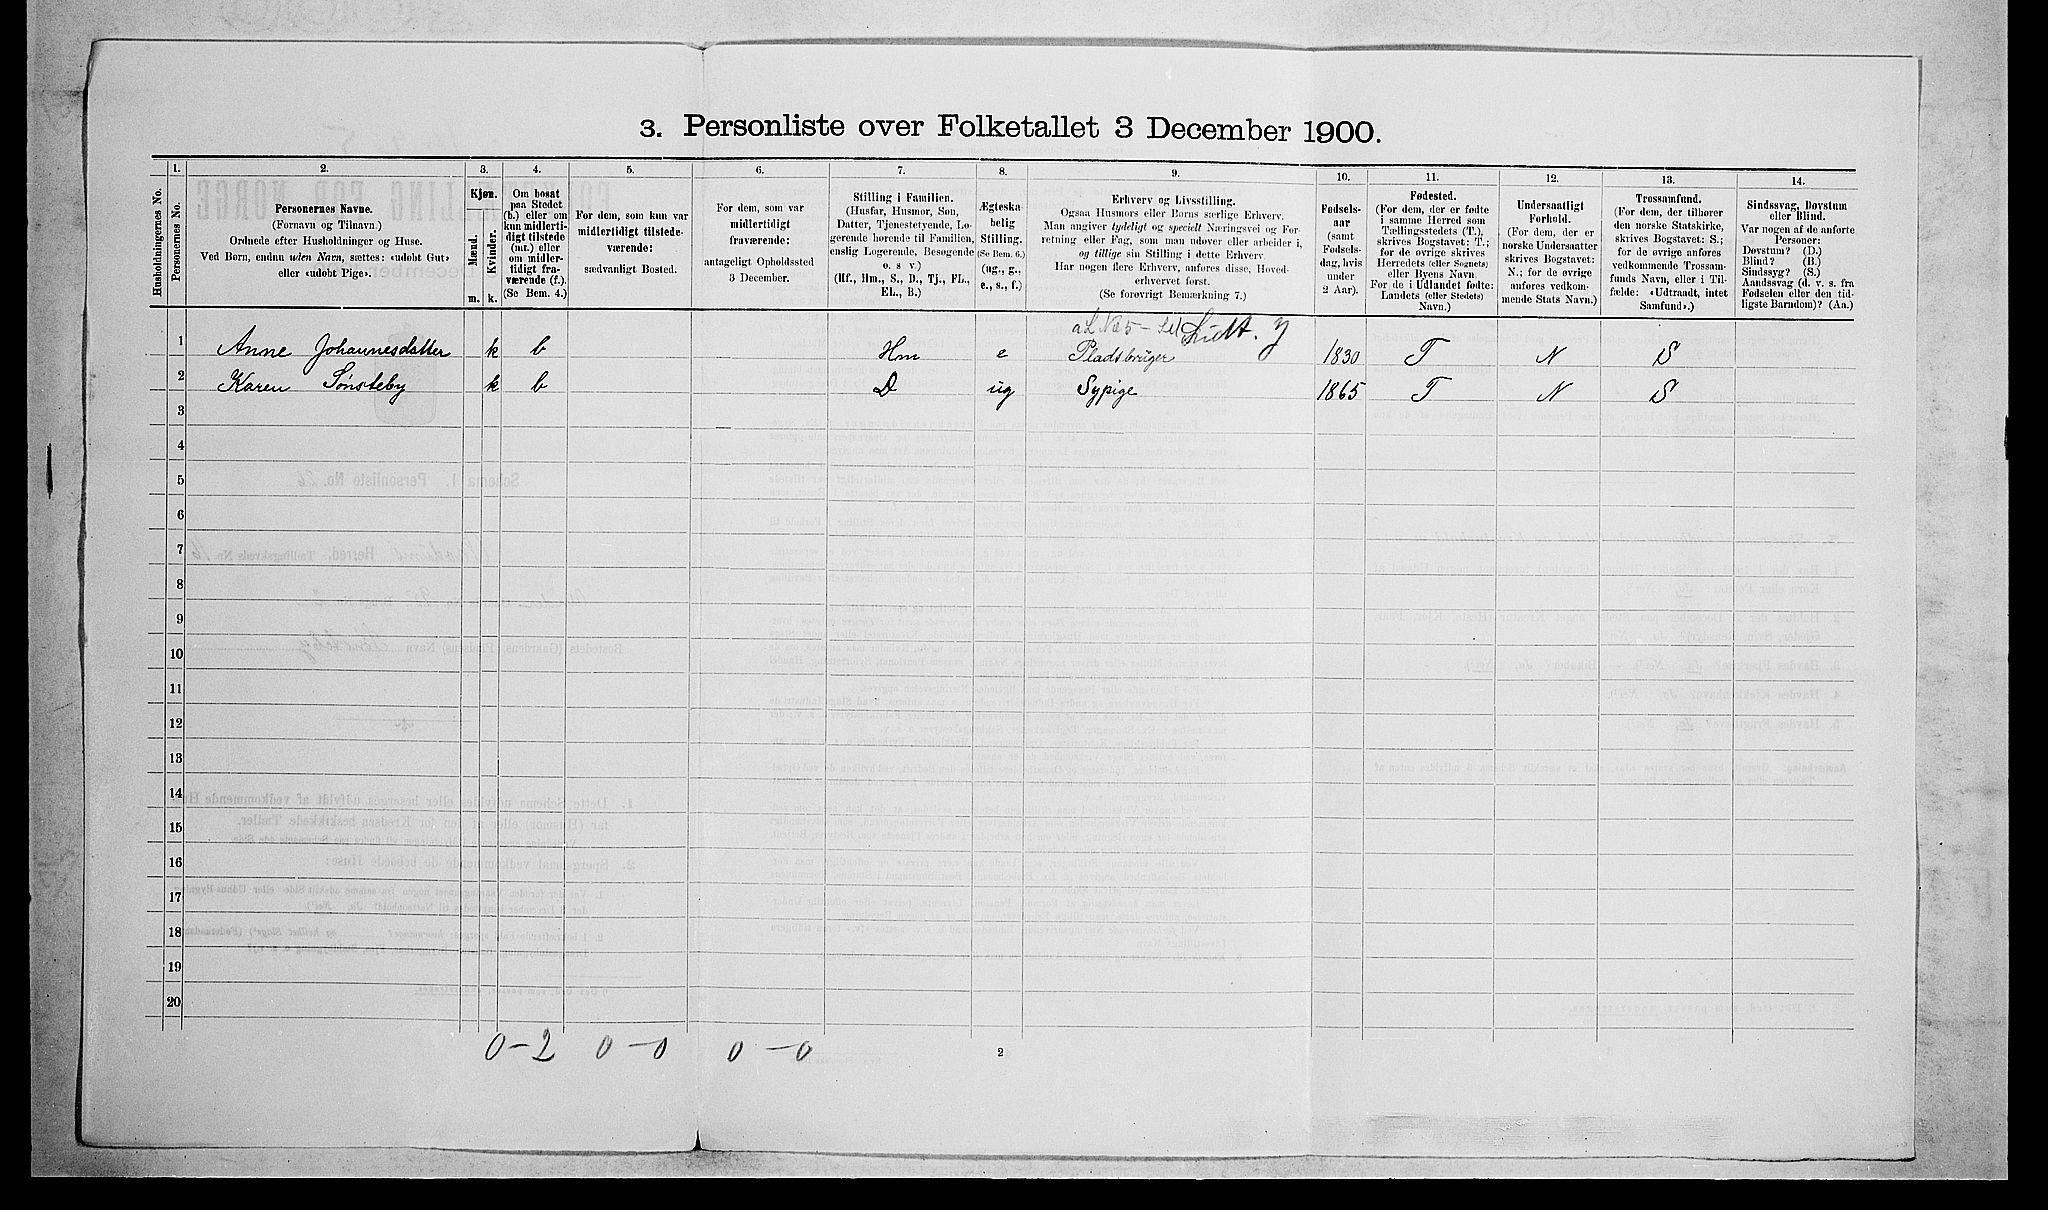 3. Personliste over Folketallet 3 December 1900.
Husholdningernes No.
1.
Personernes No.
2.
Personernes Navne.
(Fornavn og Tilnavn.)
Ordnede efter Husholdninger og Huse.
Ved Børn, endnu uden Navn, sættes: «udøbt Gut»
eller «udøbt Pige».
3.
Kjøn.
Mænd.
Kvinder.
m. k.
4.
Om bosat
paa Stedet
(b.) eller om
kun midlerti-
digt tilstede
(mt.) eller
om midler-
tidigt fra-
værende (f.).
(Se Bem. 4.)
5.
For dem, som kun var
midlertidigt tilstede-
værende:
sædvanligt Bosted.
6.
For dem, som var
midlertidigt
fraværende:
antageligt Opholdssted
3 December.
7.
Stilling i Familien.
(Husfar, Husmor, Søn,
Datter, Tjenestetyende, Lo-
gerende hørende til Familien,
enslig Logerende, Besøgende
o. s v.)
(Hf., Hm., S., D., Tj., FL.,
EL., B.)
8.
Ægteska-
belig
Stilling.
(Se Bem. 6.)
(ug., g.,
e., s., f.)
9.
Erhverv og Livsstilling.
Ogsaa Husmors eller Børns særlige Erhverv.
Man angiver tydeligt og specielt Næringsvei og For-
retning eller Fag, som man udøver eller arbeider i,
og tillige sin Stilling i dette Erhverv.
Har nogen flere Erhverv, anføres disse, Hoved-
erhvervet først.
(Se forøvrigt Bemærkning 7.)
10.
Fødsels-
aar
(samt
Fødsels-
dag, hvis
under
2 Aar).
11.
Fødested.
(For dem, der er fødte
i samme Herred som
Tællingsstedets (T.),
skrives Bogstavet: T.;
for de øvrige skrives
Herredets (eller Sognets)
eller Byens Navn.
For de i Udlandet fødte:
Landets (eller Stedets)
Navn.)
12.
Undersaatligt
Forhold.
(For dem, der er
norske Undersaatter
skrives Bogstavet:
N.; for de øvrige
anføres vedkom-
mende Stats Navn.)
13.
Trossamfund.
(For dem, der tilhører
den norske Statskirke,
skrives Bogstavet: S.;
for de øvrige anføres
vedkommende Trossam-
funds Navn, eller i Til-
fælde: «Udtraadt, intet
Samfund».)
14.
Sindssvag, Døvstum
eller Blind.
Var nogen af de anførte
Personer:
Døvstum? (D.)
Blind? (B.)
Sindssyg? (S.)
Aandssvag (d. v. s. fra
Fødselen eller den tid-
ligste Barndom)? (Aa.)
1 Anne Johannesdatter k b Hm e Pladsbruger 1830 T N S
2 Karen Sønsteby k b D ug Sypige 1865 T N S
3
4
5
6
7
8
9
10
11
12
13
14
15
16
17
18
19
20
0–2 0–0 0–0
2